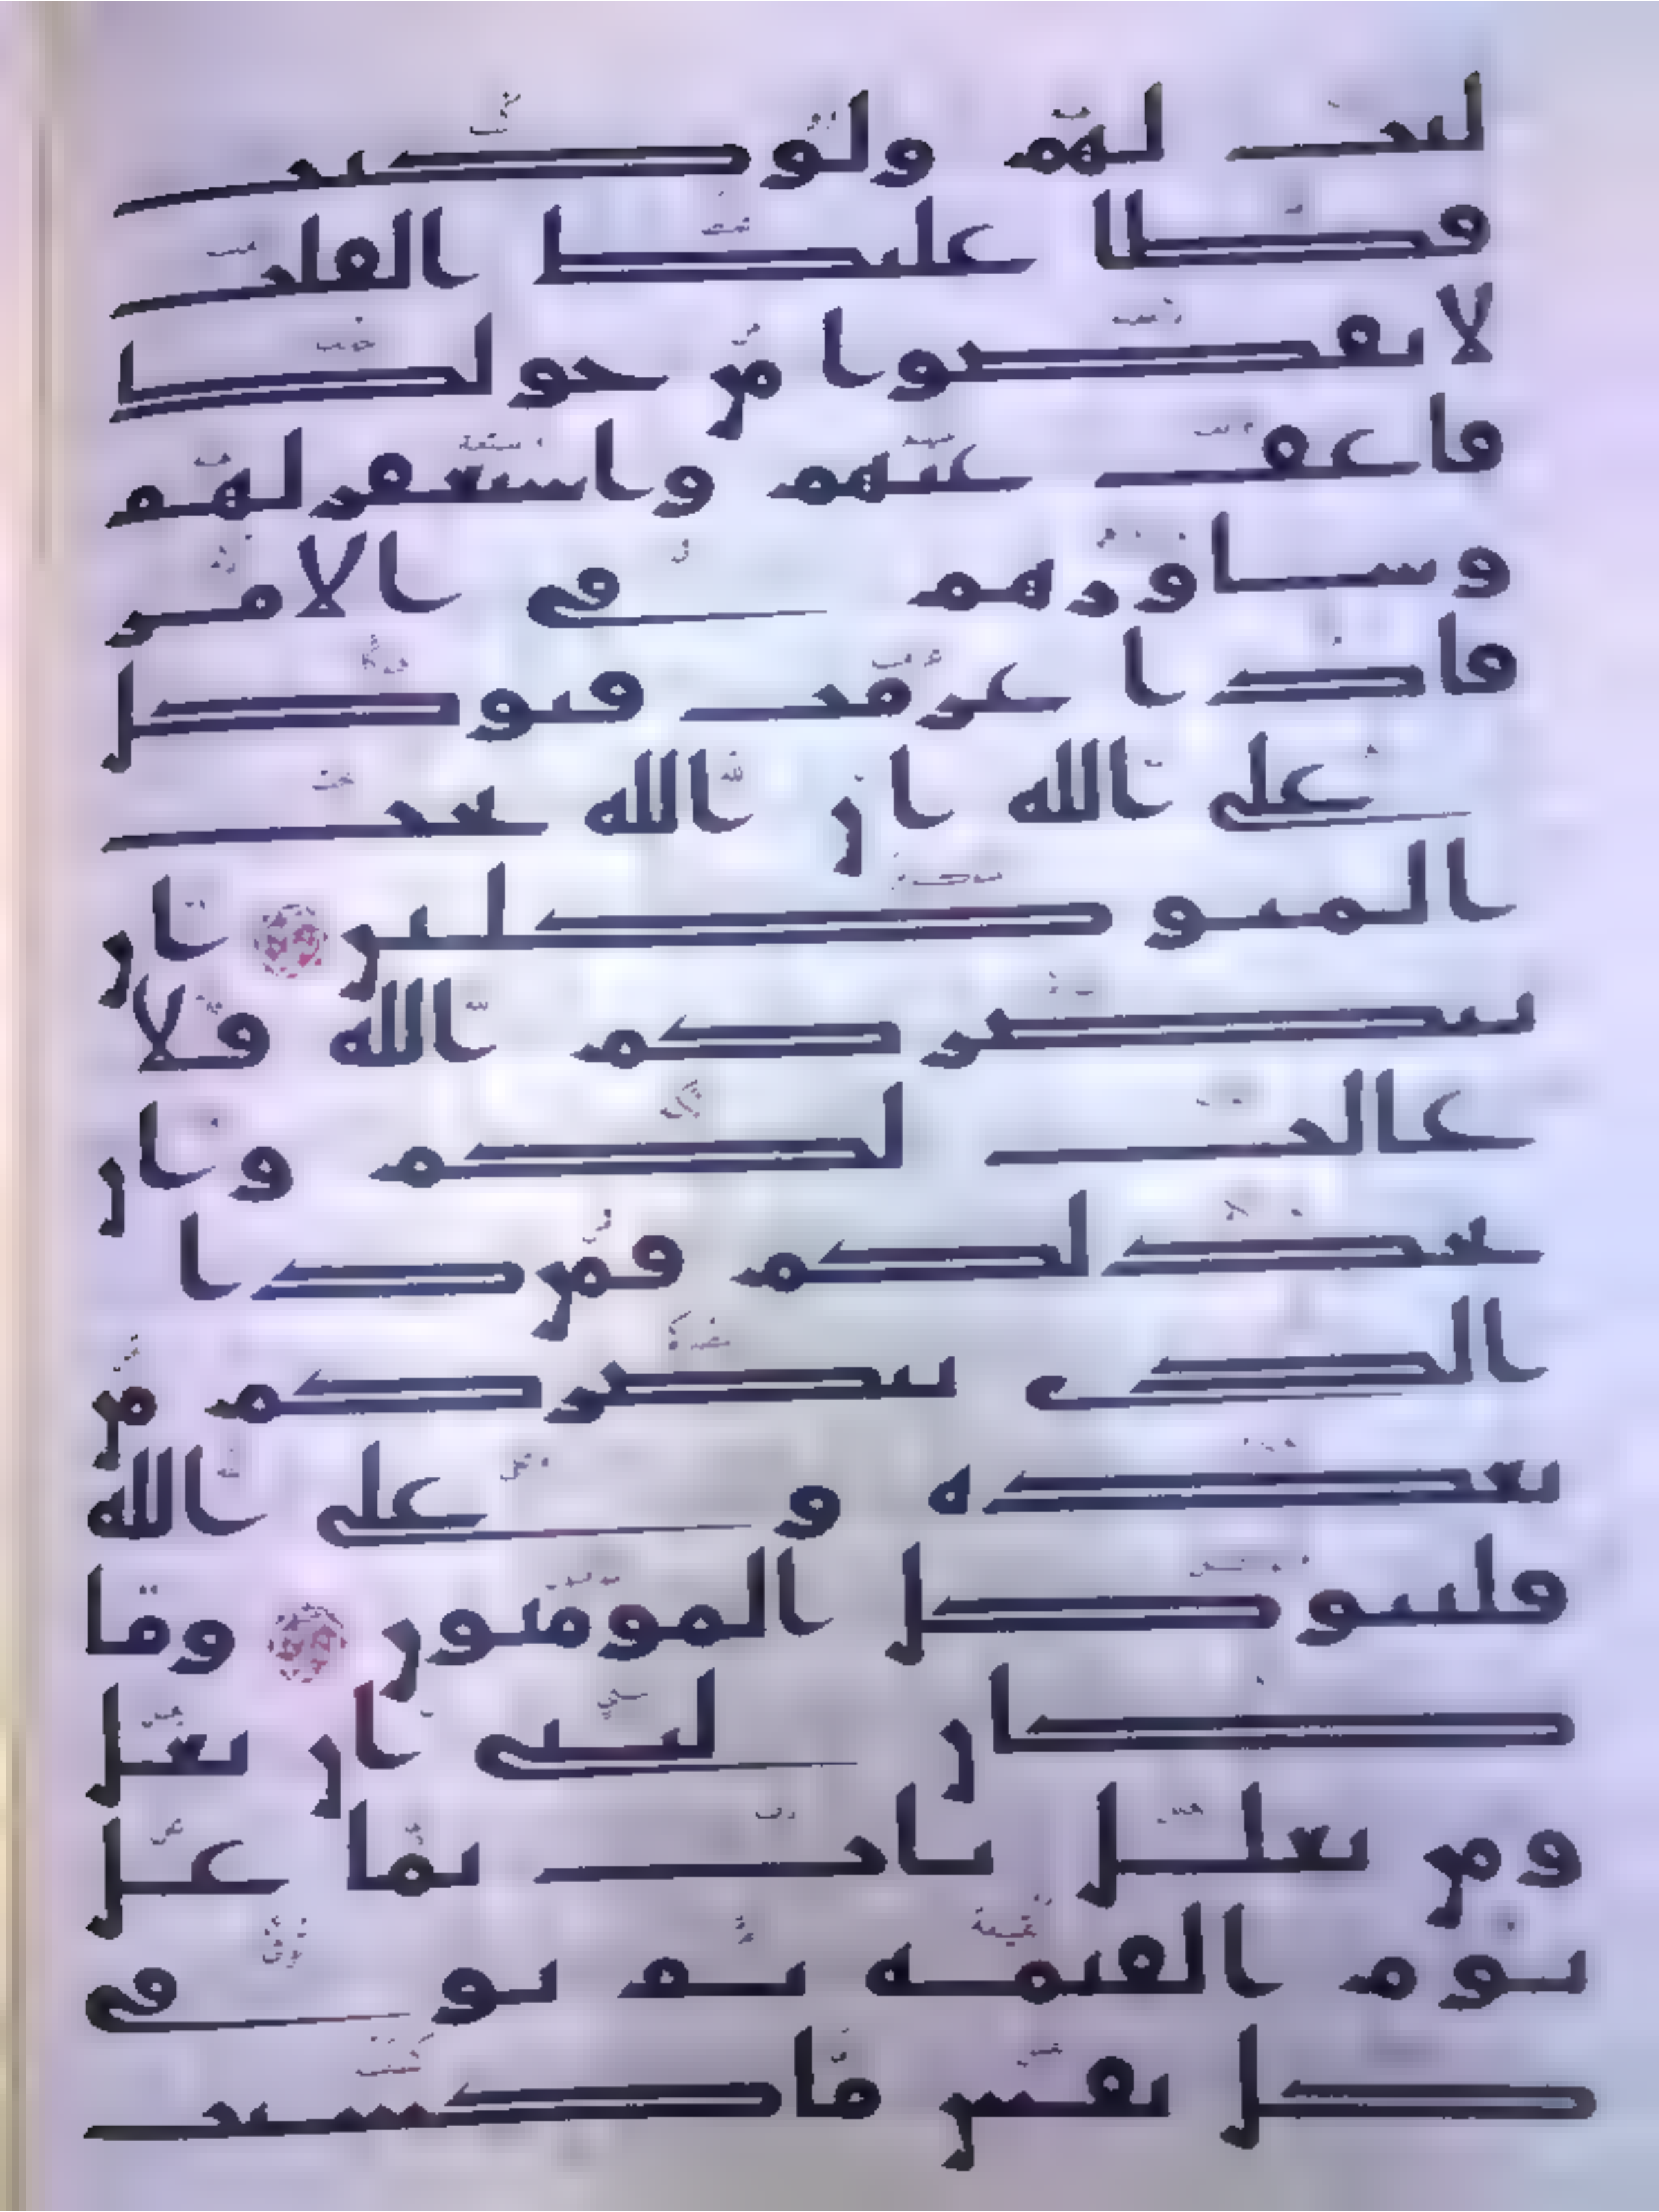 لنت لهم ولو كنت
فظا غليظ القلب
لانفضوا من حولك
فاعف عنهم واستغفر لهم
وشاورهم في الامر
فاذا عزمت فتوكل
على الله ان الله يحب
المتوكلين ان
ينصركم الله فلا
غالب لكم وان
يخذلكم فمن ذا
الذي ينصركم من
بعده وعلى الله
فليتوكل المومنون وما
كان لنبي ان يغل
ومن يغلل يات بما غل
يوم القيمة ثم توفى
كل نفس ما كسبت